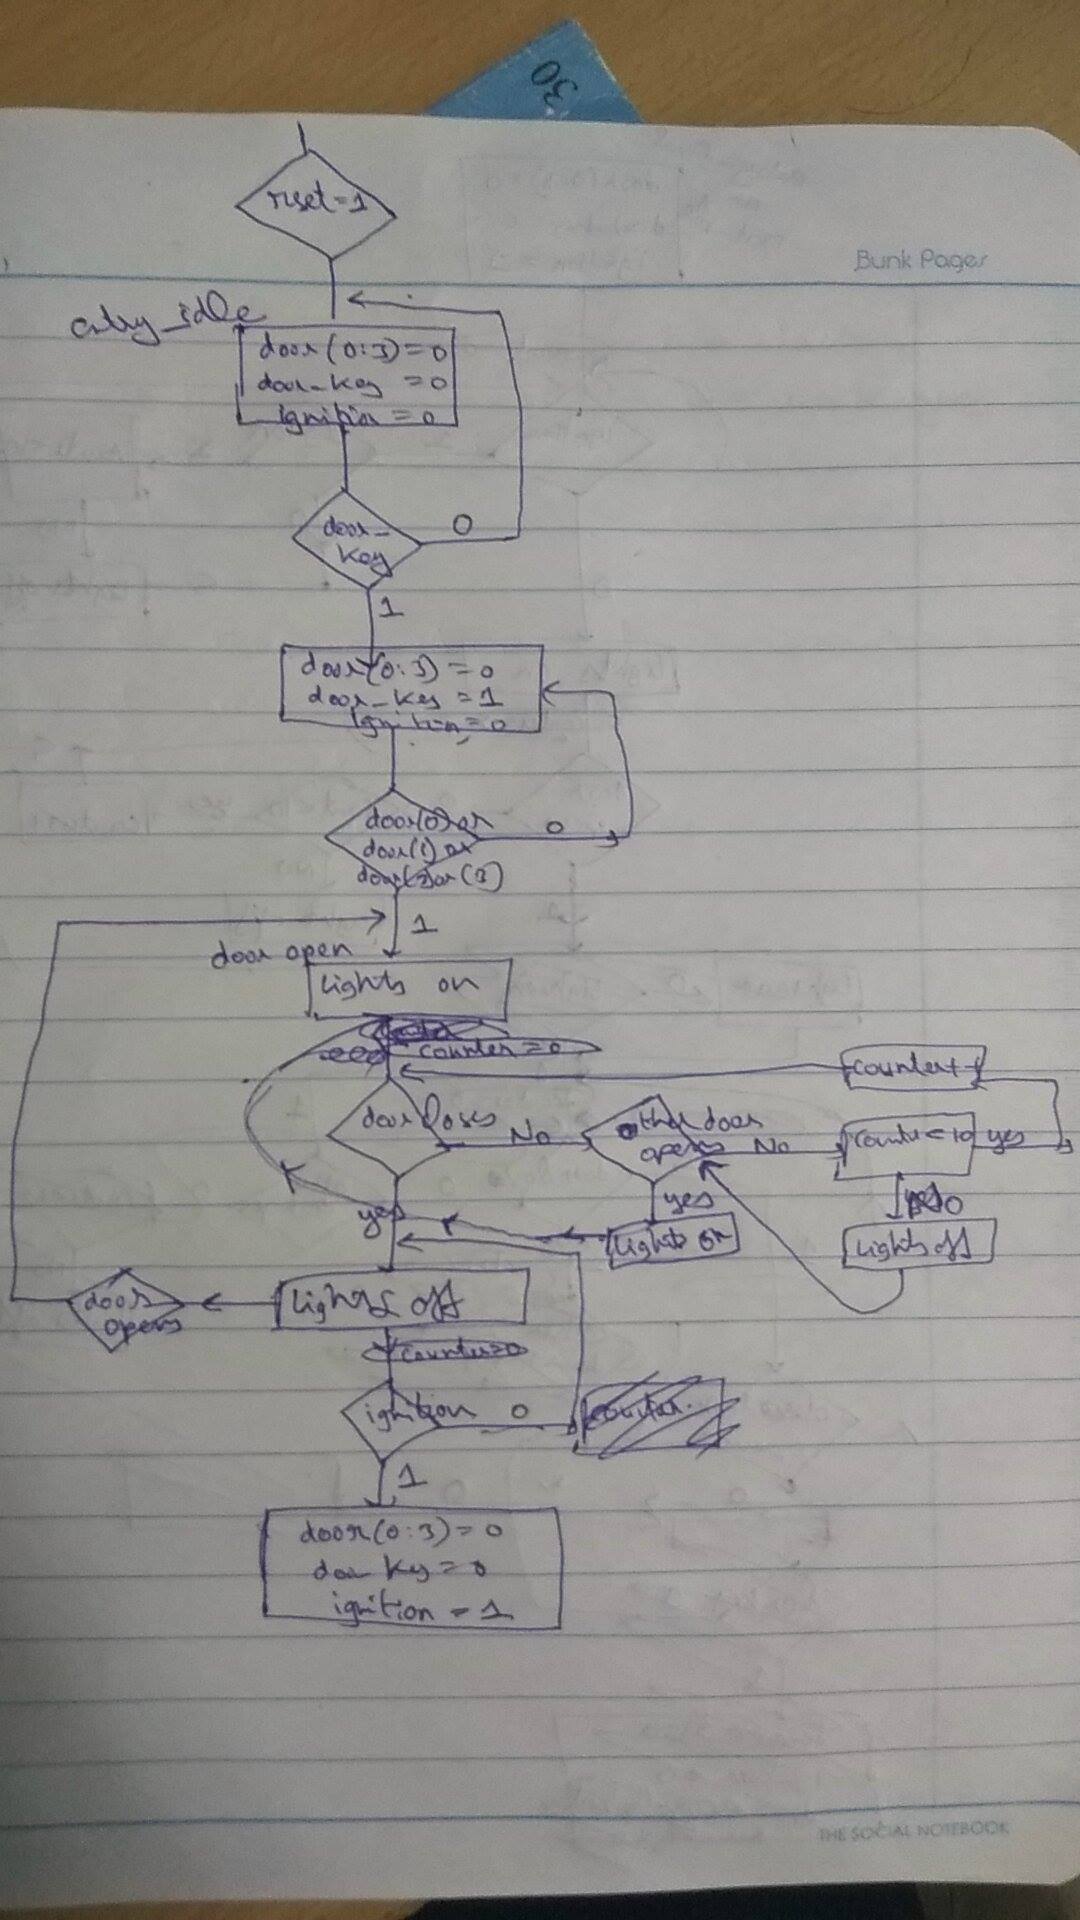 30
reset=1
Bunk Pages
entry_idle
door(0:3)=0
door_key =0
ignition = 0
door_
key
0
1
door(0:3) = 0
door_key = 1
ignition=0
door(0) or
door(1) or
(3)
0
1
door open
Lights on
counter = 0
counter++
door closes
No
other door
opens
No
counter<10
yes
yes
yes
0
Lights on
Lights off
door
opens
Lights off
counter=0
ignition
0
counter
1
door(0:3)=0
door key=0
ignition = 1
THE SOCIAL NOTEBOOK